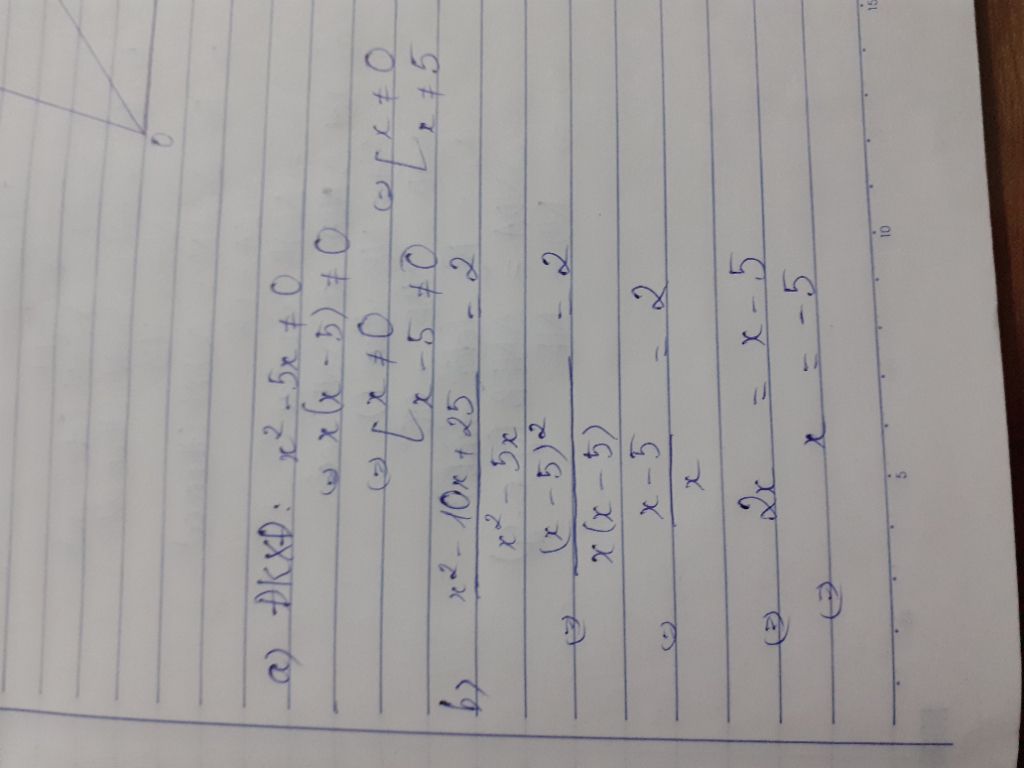 0
a) ĐKXĐ: x² - 5x ≠ 0
⇔ x(x - 5) ≠ 0
⇔ [ x ≠ 0 ⇔ [ x ≠ 0
x - 5 ≠ 0 x ≠ 5
b) x² - 10x + 25 / x² - 5x = 2
⇔ (x - 5)² / x(x - 5) = 2
⇔ x - 5 / x = 2
⇔ 2x = x - 5
⇔ x = -5
5
10
15